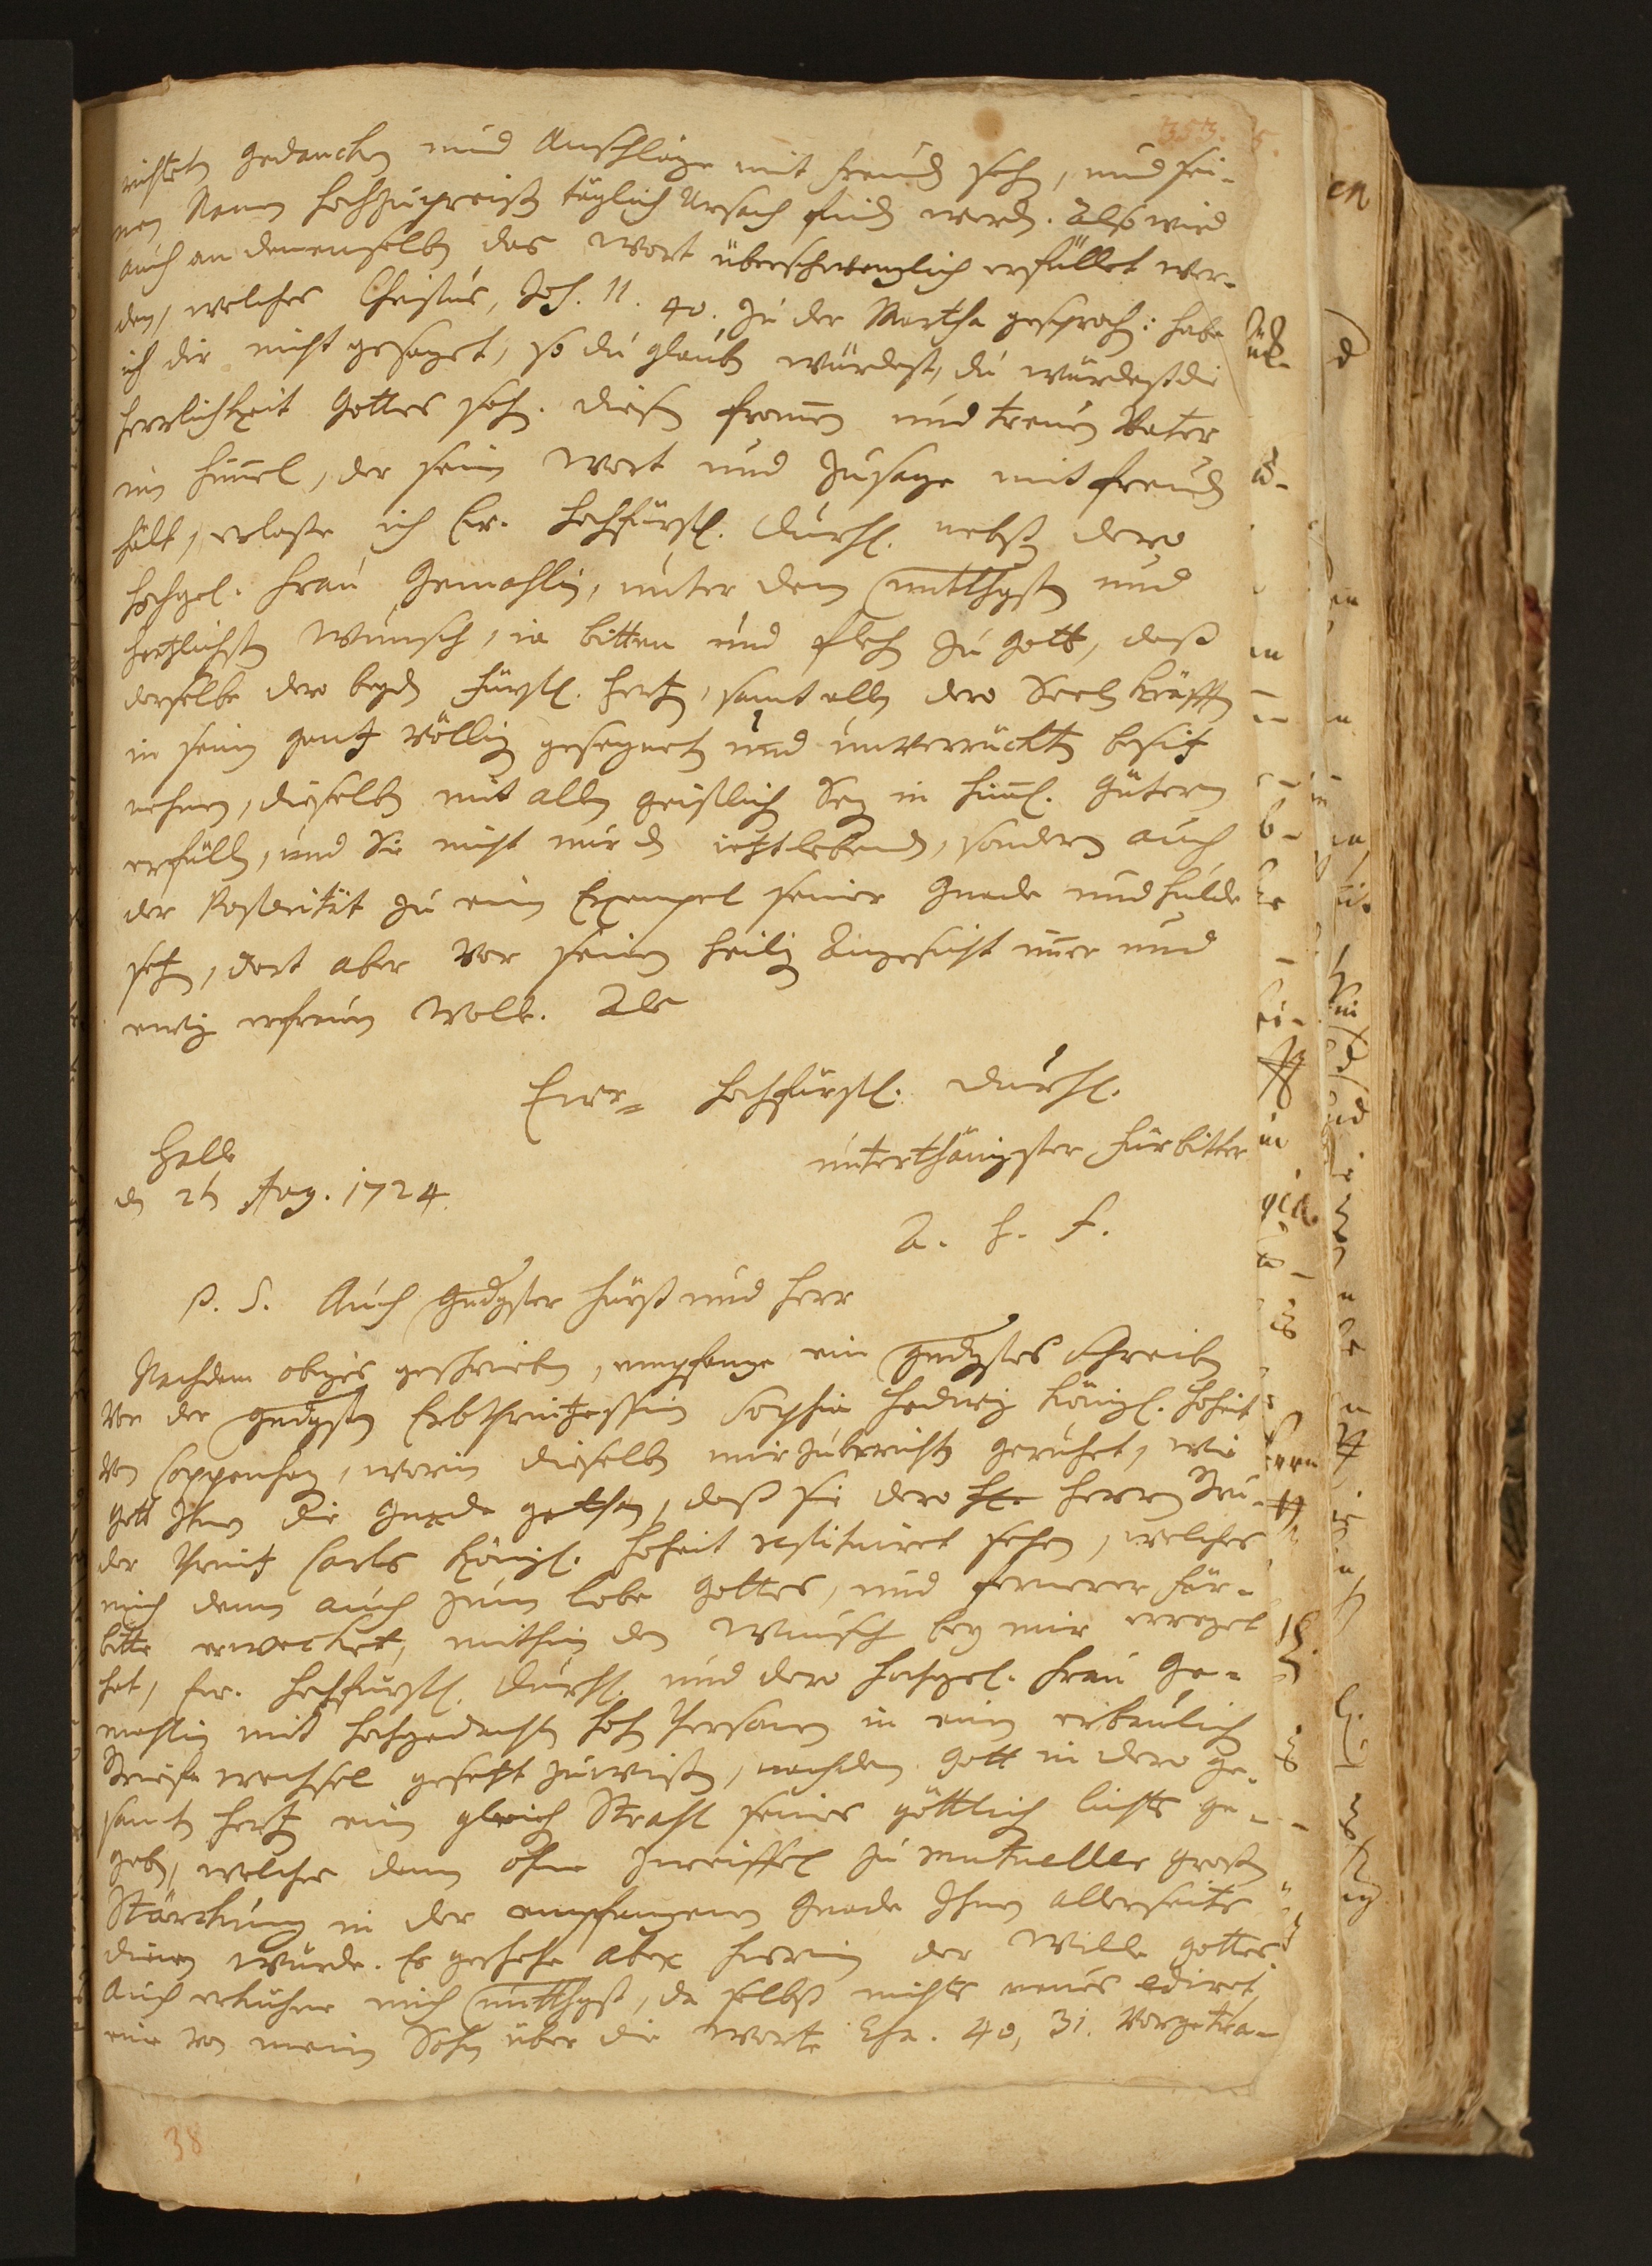 353.
richteten Gedancken und Anschläge mit Freuden sehen, und sei-
nen Namen hochzupreisen täglich Ursach finden werden. Also wird
auch an demenselben das Wort überschwenglich erfüllet wer-
den, welches Christus, Joh. 11. 40. zu der Martha gesprochen: habe
ich dir nicht gesaget, so du glauben würdest, du würdest die
Herrlichkeit Gottes sehen. Diesen frommen und treuen Vater
im Himmel, der sein Wort und Zusage mit Freuden
hält, erlaße ich Ew. Hochfürstl. Durchl. nebst dero
Hochgel. Frau Gemahlin, unter dem unterthgsten und
hertzlichsten Wunsch, ia bitten und flehen zu Gott, daß
derselbe dero beyden Fürstl. Hertzen, samt allen dero Seelen Kräfften
in seinen gantz völligen gesegneten und unverrückten besitz
nehmen, dieselben mit allen geistlichen Segen in himml. Gütern
erfüllen, und Sie nicht nur den ietztlebenden, sondern auch
der Posterität zu einem Exempel seiner Gnade und Hulde
setzen, dort aber vor seinem heiligen Angesicht immer und
ewig erfreuen wolle. Als
Ewr= Hochfürstl. Durchl.
Halle
unterthänigster Fürbitter
den 26 Aug. 1724.
A. H. F.
P. S. Auch Gndgster Fürst und Herr
Nachdem obiges geschrieben, empfange ein gndgstes Schreiben
von der gndgsten Erbprintzessin Sophia Hedwig Königl. Hoheit
von Coppenhagen, worin dieselben mir zuberichten geruhet, wie
Gott Ihnen die Gnade gethan, daß sie dero Herrn Bru-
der Printz Carls Königl. Hoheit restituiret sehen, welches
mich denn auch zum Lobe Gottes, und fernerer Für-
bitte erwecket, mithin den Wunsch bey mir erreget
hat, Ew. Hochfürstl. Durchl. und dero Hochgel. Frau Ge-
mahlin mit hochgedachten hohen Personen in einen erbaulichen
Briefwechsel gesetzt zuwissen, nachdem Gott in dero ge-
samten Hertzen einen gleichen Strahl seines göttlichen Lichts ge-
geben, welches denn ohne Zweiffel zu mutueller großen
Stärckung in der empfangenen Gnade Ihnen allerseits
dienen würde. Es geschehe aber hierin der Wille Gottes.
Auch erkühne mich unterthgst, da selbst nichts neues ediret,
eine von meinem Sohn über die Worte Esa. 40, 31. vorgetra-
38